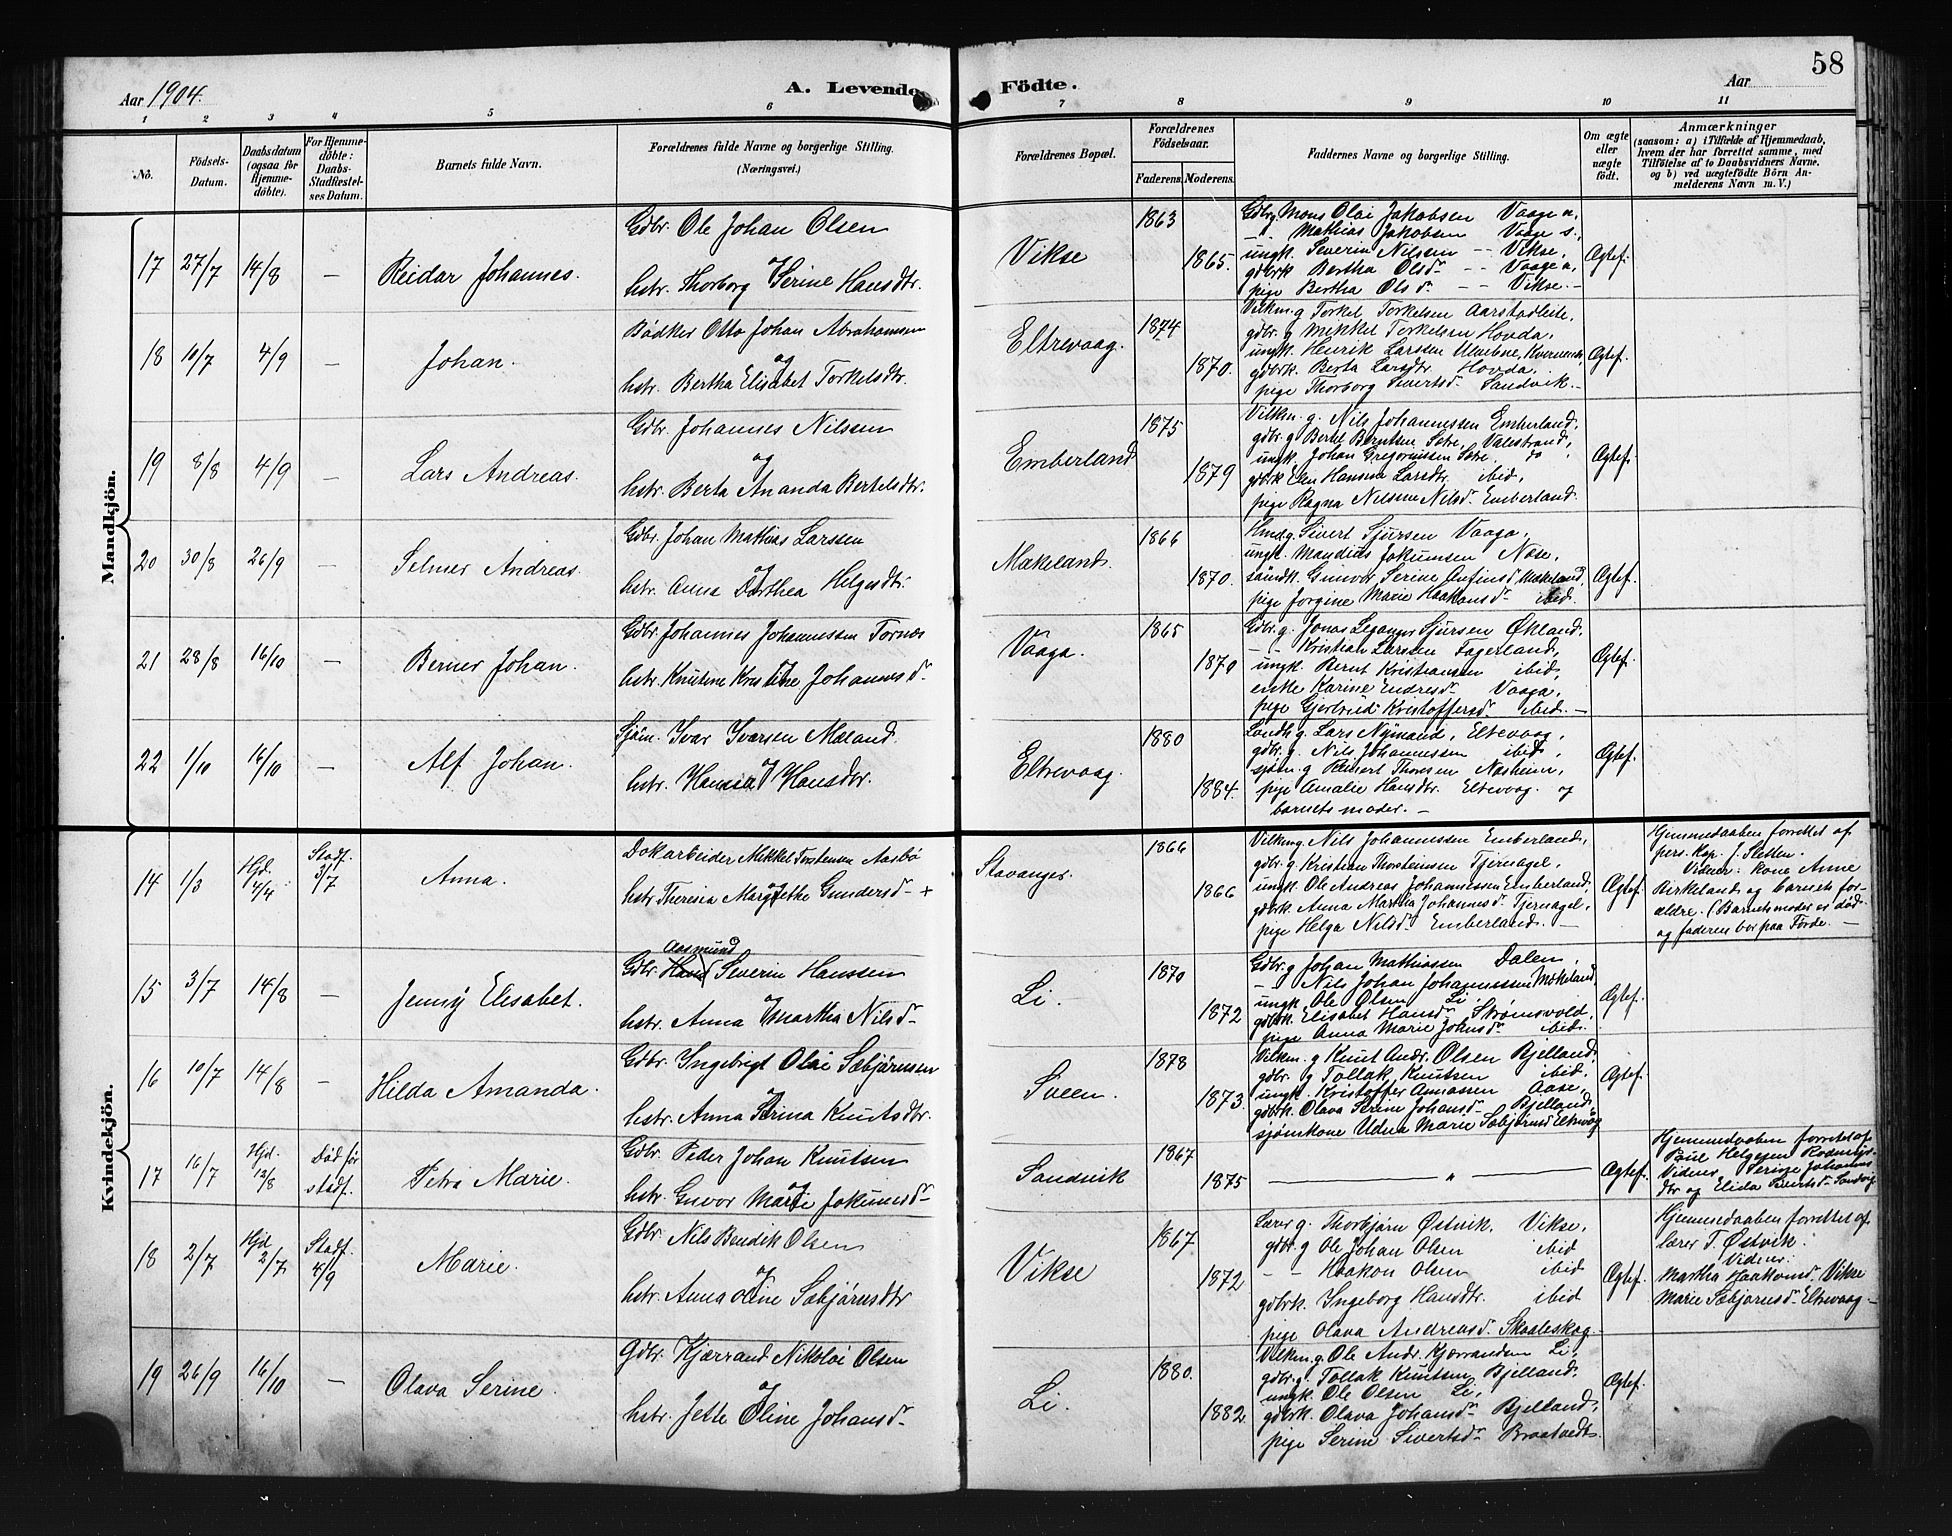 58
Aar 1904.
A. Levende Födte.
Aar
1 2 3 4 5 6 7 8 9 10 11
No.
Födsels-Datum.
Daabsdatum (ogsaa for Hjemme-döbte).
For Hjemme-döbte: Daabs-Stadfæstel-ses Datum.
Barnets fulde Navn.
Forældrenes fulde Navne og borgerlige Stilling.
(Næringsvei.)
Forældrenes Bopæl.
Forældrenes Födselsaar.
Faderens. Moderens.
Faddernes Navne og borgerlige Stilling.
Om ægte eller uægte födt.
Anmærkninger
(saasom: a) i Tilfælde af Hjemmedaab,
hvem der har forrettet samme, med
Tilföielse af to Daabsvidners Navne.
og b) ved uægtefödte Börn An-
melderens Navn m. V.)
Mandkjön.
17 27/7 14/8 — Reidar Johannes.
Gdbr. Ole Johan Olsen
og
hstr. Thorborg Serine Hansdtr.
Vikse 1863 1865.
Gdbr. g. Mons Olai Jakobsen Vaage n.
— " Mathias Jakobsen Vaage s.,
ungk. Severin Nilsen — Vikse,
gdbrk. Bertha Olsd. — Vaage n,
pige Bertha Olsd. — Vikse. —
Ægtef.
18 10/7 4/9 — Johan.
Bödker Otto Johan Abrahamsen
og
hstr. Bertha Elisabet Torkelsdtr.
Eltrevaag. 1874 1870.
Vilkm. g Torkel Torkelsen Aarstadleite,
gdbr. g. Mikkel Torkelsen Hovda,
ungk. Henrik Larssen
gdbrk. Berta Larsdtr. Hovda,
pige Thorborg Sivertsd. Sandvik. —
Ægtef.
19 8/8 4/9 — Lars Andreas.
Gdbr. Johannes Nilsen
og
hstr. Berta Ananda Bertelsdtr.
Emberland 1875 1879
Vilkm. g. Nils Johannessen Emberland,
gdbr. g Bertel Berntsen Sætre, Valestrand,
ungk. Johan Gregoriussen Sætre, do,
gdbrk Hansina Larsdtr. ibid,
pige Ragna Nilsine Nilsd. Emberland.
Ægtef.
20 30/8 26/9 — Selmer Andreas.
Gdbr. Johan Mathias Larssen
og
hstr. Anna Dorthea Helgesdtr.
Mækeland. 1866 1870.
Hmd. g. Sivert Sjursen Vaaga,
ungk. Mandius Jokumsen Næse,
Gunvor Serine Anfinsd. Mækeland,
pige Jorgine Marie Haakonsd. ibid.
Ægtef.
21 28/8 16/10 — Berner Johan.
Gdbr. Johannes Johannessen Tornes
og
hstr. Knutine Kristine Johannesd.
Vaaga. 1865 1870
Gdbr. g. Jonas Leganger Sjursen Økland,
— — Kristian Larssen Fagerland,
ungk. Bernt Kristiansen ibid,
enke Karine Endresd. Vaaga,
pige Gjertrud Kristoffersd. ibid. —
Ægtef.
22 1/10 16/10 — Alf Johan.
Sjøm. Ivar Iversen Mæland.
og
hstr. Hansina Hansdtr.
Eltrevaag. 1880 1884.
Landh. g. Lars Nymand, Eltrevaag,
gdbr. g. Nils Johannessen ibid,
sjøm. g Reinert Thoresen Næsheim,
pige Amalie Hansdtr. Eltrevaag. og
barnets moder. —
Ægtef.
Kvindekjön.
14 1/3 Hjd. 4/4 Stadf. 3/7 Anna.
Dokarbeider Mikkel Torstensen Aasbø
og
hstr Theresia Margrethe Gundersd. +
Stavanger. 1866 1866
Vilkm. g Nils Johannessen Emberland,
gdbr. g. Kristian Thorsteinsen Tjernagel,
ungk. Ole Andreas Johannessen Emberland,
gdbrk. Anna Martha Johannesd. Tjernagel,
pige Helga Nilsd. Emberland. —
Ægtef.
Hjemmedaaben forrettet af
pers. Kap. J. Sletten.
Vidner: kone Anne
Birkeland og barnets for-
ældre. (Barnets moder er död
og faderen bor paa Förde. —
15 3/7 14/8 — Jenny Elisabet.
Aasmund
Gdbr. Hans Severin Hanssen
og
hstr. Anna Martha Nilsd.
Li. 1870 1872
Gdbr. g Johan Mathiassen Dalen,
— " Nils Johan Johannessen Mækeland
ungk. Ole Olsen Li,
gdbrk. Elisabet Hansd. Strømsvold,
pige Anna Marie Johnsd. ibid.
Ægtef.
16 10/7 14/8 — Hilda Amanda.
Gdbr. Ingebrigt Olai Sæbjørnsen
og
hstr. Anna Serina Knutsdtr.
Sveen. 1878 1873.
Vilkm. g Knut Andr. Olsen Bjelland,
gdbr. g Tollak Knutsen ibid,
ungk. Kristoffer Annassen Aase,
gdbrk. Olava Serine Johansd. Bjelland,
sjømkone Udna Marie Sæbjørnsd Eltrevåg
Ægtef.
17 16/7 Hjd. 12/8 Död før stadf. Petra Marie.
Gdbr. Peder Johan Knutsen
og
hstr. Gunvor Marie Jokumsd.
Sandvik 1867 1875
— " —
Ægtef.
Hjemmedaaben forrettet af
Paul Helgesen
Vidner, Serine Johannes-
dtr og Elida Sivertsd. Sandvig
18 2/7 Hjd 2/7 Stadf. 4/9 Marie.
Gdbr. Nils Bendik Olsen
og
hstr. Anna Oline Sæbjørnsdtr
Vikse 1867 1872
Lærer g. Thorbjørn Østvik, Vikse,
gdbr. g Ole Johan Olsen ibid
— - Haakon Olsen ibid
gdbrk. Ingeborg Hansdtr. ibid
pige Olava Andreasd. Skaaleskog.
Ægtef.
Hjemmedaaben forrettet af
lærer T. Østvik.
Vidner:
Martha Haakonsd. Vikse
Marie Sæbjørnsd. Eltrevaag —
19 26/9 16/10 — Olava Serine.
Gdbr. Kjærrand Nikolai Olsen
og
hstr. Jette Oline Johansd.
Li. 1880. 1882
Vilkm. g. Ole Andr. Kjærrandsen Li,
gdbr. g. Tollak Knutsen Bjelland,
ungk. Ole Olsen Li,
gdbrk. Olava Johansd. Bjelland,
pige Serine Sivertsd. Braatvedt.
Ægtef.